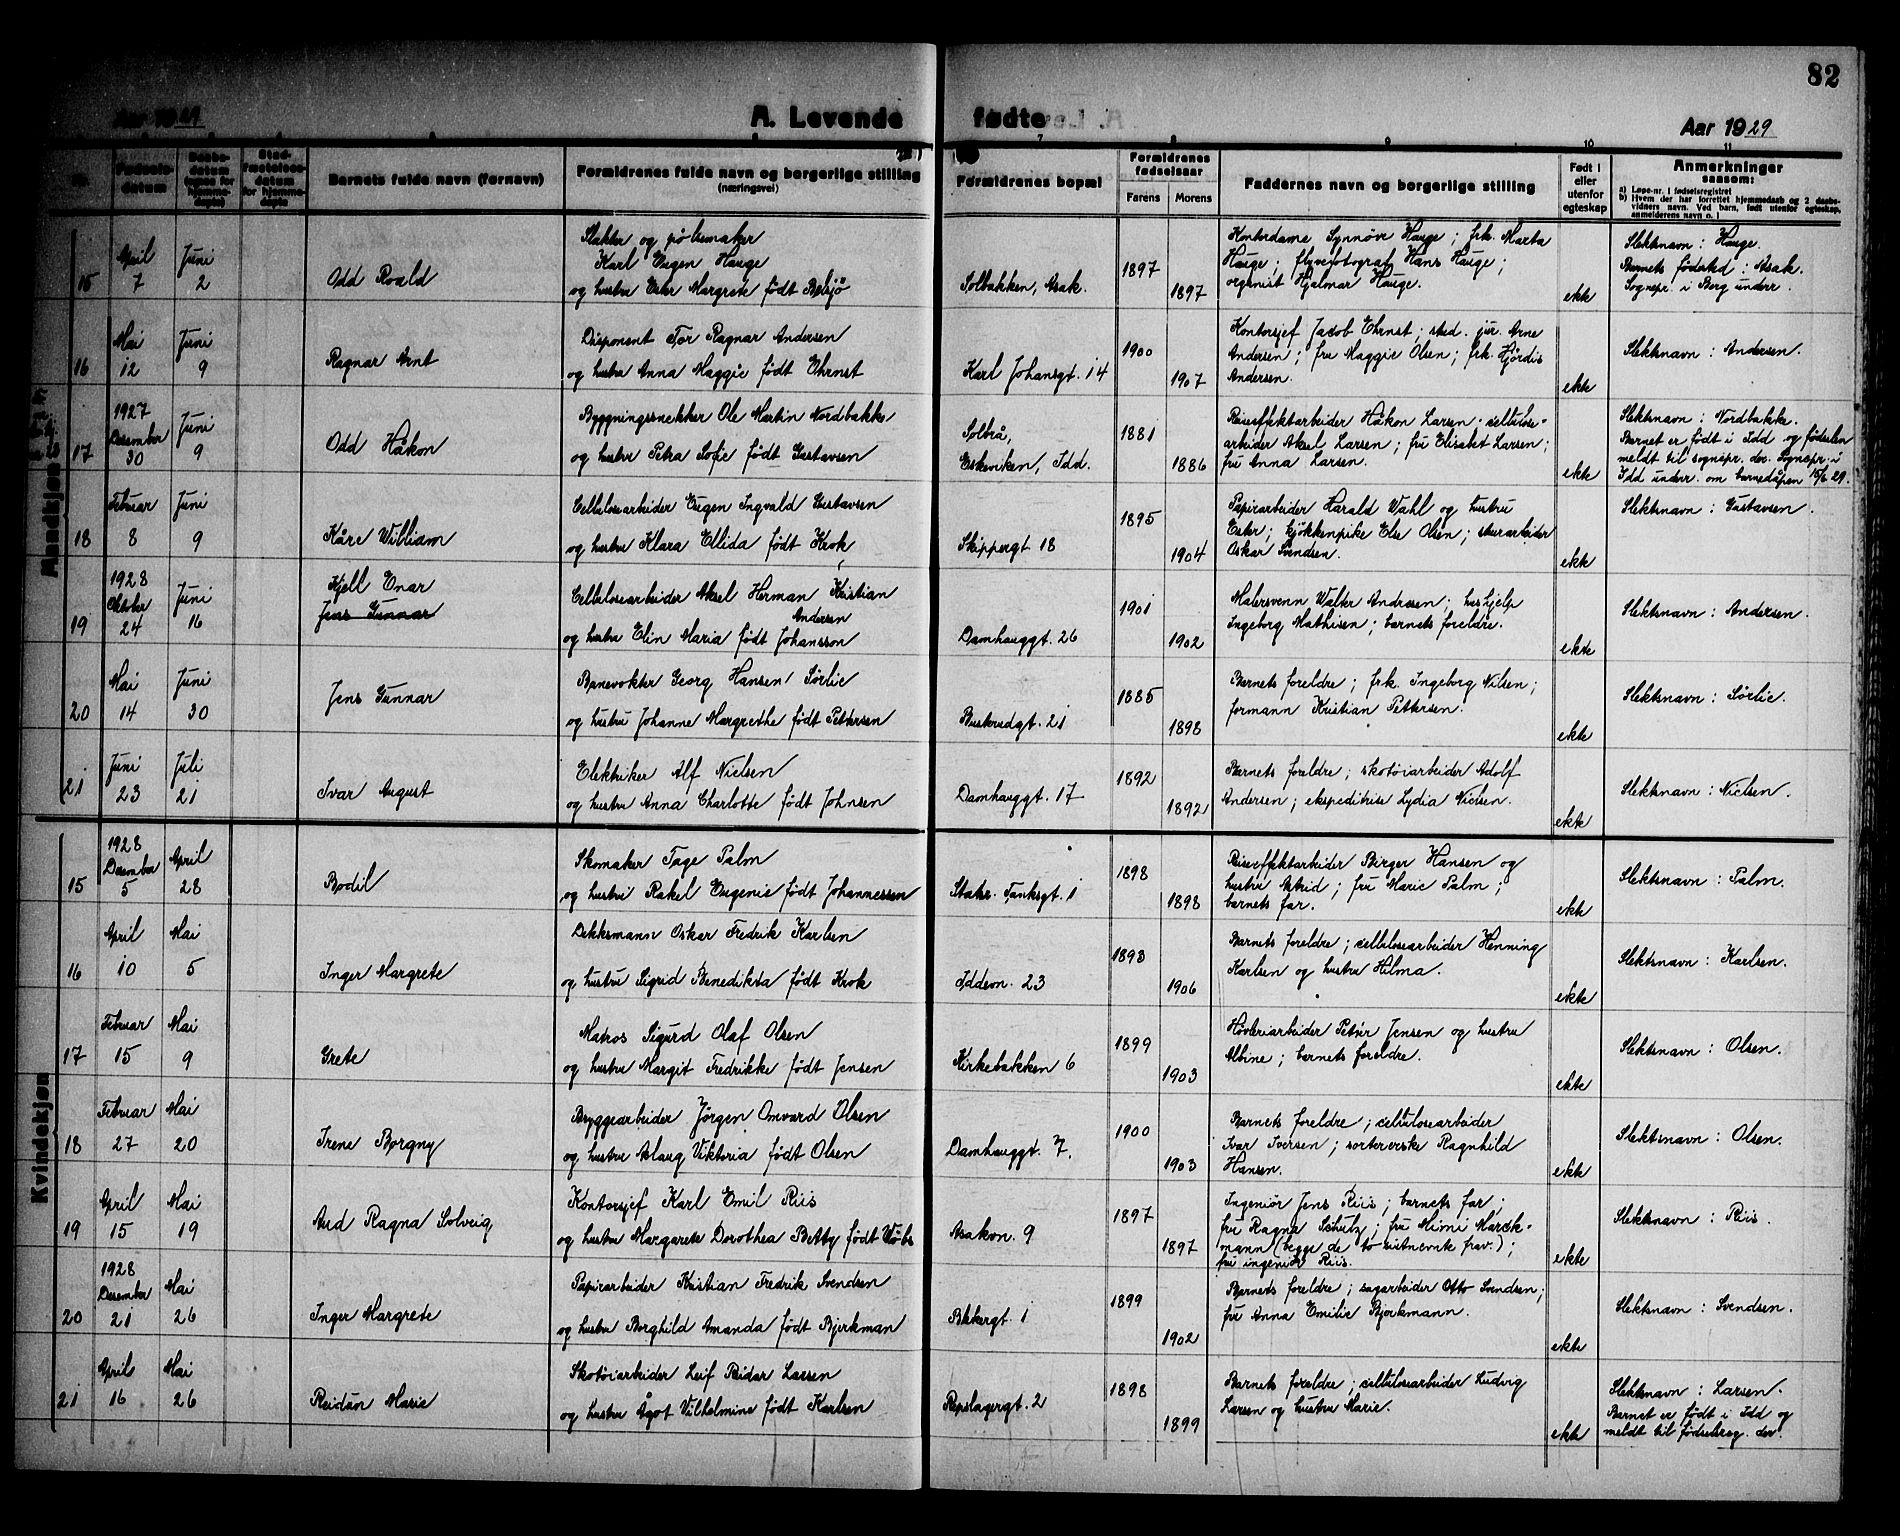 82
Aar 1929
A. Levende
fødte
Aar 1929
7
8
9
10
11
Fødsels-
datum
Daabs-
datum
Stad-
fæstelses-
datum
for hjemme-
døpte
Barnets fulde navn (fornavn)
Forældrenes fulde navn og borgerlige stilling
(næringsvei)
Forældrenes bopæl
Forældrenes
fødselsaar
Farens
Morens
Faddernes navn og borgerlige stilling
Født i
eller
utenfor
egteskap
Anmerkninger
saasom:
a) Løpe-nr. i fødselsregistret
b) Hvem der har forrettet hjemmedaab og 2 daabs-
vidners navn. Ved barn, født utenfor egteskap,
anmelderens navn o. l
Mandkjøn
15
April
7
Juni
2
Odd Roald
Slakter og pølsemaker
Karl Eugen Hauge
og hustru Ester Margrete født Belsjø
Solbakken, Asak.
1897
1897
Kontordame Synnøve Hauge; frk. Marta
Hauge; flyvefotograf Hans Hauge;
organist Hjalmar Hauge.
ekte
Slektsnavn: Hauge.
Barnets fødested: Asak.
Sognepr. i Berg underr.
16
Mai
12
Juni
9
Ragnar Arnt
Disponent Tor Ragnar Andersen
og hustru Anna Maggie født Ehrnst
Karl Johansgt. 14
1900
1907
Kontorsjef Jacob Ehrnst; stud. jur. Arne
Andersen; fru Maggie Olsen; frk. Hjørdis
Andersen.
ekte
Slektsnavn: Andersen.
17
1927
Desember
30
Juni
9
Odd Håkon
Byggningssnekker Ole Martin Nordbakke
og hustru Petra Sofie født Gustavsen
Solbrå,
Eskeviken, Idd.
1881
1886
Reiseeffektarbeider Håkon Larsen; cellulose-
arbeider Aksel Larsen; fru Elisabet Larsen;
fru Anna Larsen.
ekte
Slektsnavn: Nordbakke.
Barnet er født i Idd og fødselen
meldt til sognepr. der. Sognepr. i
Idd underr. om barnedåpen 15/6 29.
18
Februar
8
Juni
9
Kåre William
Cellulosearbeider Eugen Ingvald Gustavsen
og hustru Klara Ellida født Krok
Skippergt 18
1895
1904
Papirarbeider Harald Wahl og hustru
Ester; kjøkkenpike Else Olsen; skurarbeider
Oskar Svendsen.
ekte
Slektsnavn: Gustavsen.
19
1928
Oktober
24
Juni
16
Kjell Enar
Jens Gunnar
Cellulosearbeider Aksel Herman Kristian
Andersen
og hustru Elin Maria født Johansson
Damhauggt. 26
1901
1902
Malersvenn Walter Andresen; hushjelp
Ingeborg Mathisen; barnets foreldre.
ekte
Slektsnavn: Andersen.
20
Mai
14
Juni
30
Jens Gunnar
Banevokter Georg Hansen Sørlie
og hustru Johanne Margrethe født Pettersen
Buskrudgt. 21
1885
1898
Barnets foreldre; frk. Ingeborg Nilsen;
formann Kristian Pettersen.
ekte
Slektsnavn: Sørlie.
21
Juni
23
Juli
21
Ivar August
Elektriker Alf Nielsen
og hustru Anna Charlotte født Johnsen
Damhauggt. 17
1892
1892
Barnets foreldre; skotøiarbeider Adolf
Andersen; ekspeditrise Lydia Nielsen.
ekte
Slektsnavn: Nielsen.
Kvindekjøn
15
1928
Desember
5
April
28
Bodil
Skomaker Tage Palm
og hustru Rakel Eugenie født Johannessen
Statsr. Tanksgt. 1
1898
1898
Reiseeffektarbeider Birger Hansen og
hustru Astrid; fru Marie Palm;
barnets far.
ekte
Slektsnavn: Palm.
16
April
10
Mai
5
Inger Margrete
Dekksmann Oskar Fredrik Karlsen
og hustru Sigrid Benedikta født Krok
Iddevn. 23
1893
1906
Barnets foreldre; cellulosearbeider Henning
Karlsen og hustru Hilma.
ekte
Slektsnavn: Karlsen.
17
Februar
15
Mai
9
Grete
Matros Sigurd Olaf Olsen
og hustru Margit Fredrikke født Jensen
Kirkebakken 6
1899
1903
Høvleriarbeider Petter Jensen og hustru
Albine; barnets foreldre.
ekte
Slektsnavn: Olsen.
18
Februar
27
Mai
20
Irene Borgny
Bryggearbeider Jørgen Omvard Olsen
og hustru Aslaug Viktoria født Olsen
Damhauggt. 7.
1900
1903
Barnets foreldre; cellulosearbeider
Ivar Iversen; sortererske Ragnhild
Hansen.
ekte
Slektsnavn: Olsen.
19
April
15
Mai
19
Aud Ragna Solveig
Kontorsjef Karl Emil Riis
og hustru Margarete Dorothea Betty født Wöbs
Asakvn. 9
1897
1897
Ingeniør Jens Riis; barnets far;
fru Ragna Schulz; fru Mimi Marck-
mann (begge de to sistnevnte frav.);
fru ingeniør Riis.
ekte
Slektsnavn: Riis.
20
1928
Desember
21
Mai
26
Inger Margrete
Papirarbeider Kristian Fredrik Svendsen
og hustru Borghild Amanda født Bjerkman
Blokkergt. 1
1899
1902
Barnets foreldre; sagarbeider Otto Svendsen;
fru Anna Emilie Bjerkmann.
ekte
Slektsnavn: Svendsen.
21
April
16
Mai
26
Reidun Marie
Skotøiarbeider Leif Reidar Larsen
og hustru Ågot Vilhelmine født Karlsen
Repslagergt. 2
1898
1899
Barnets foreldre; cellulosearbeider Ludvig
Larsen og hustru Marie.
ekte
Slektsnavn: Larsen.
Barnet er født i Idd og
meldt til fødselsreg. der.